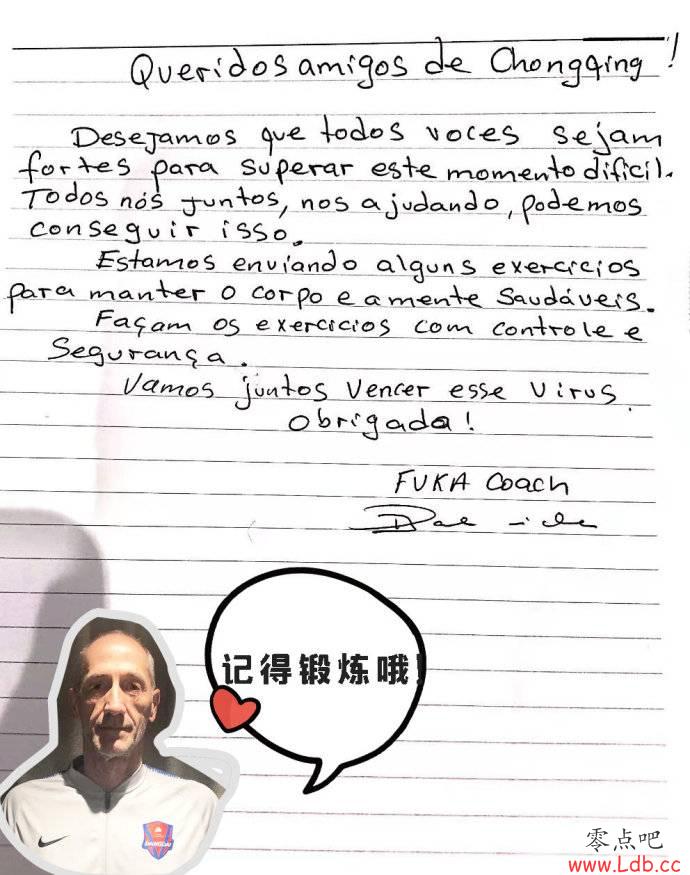 Queridos amigos de Chongqing!
Desejamos que todos voces sejam
fortes para superar este momento dificil.
Todos nós juntos, nos ajudando, podemos
conseguir isso.
Estamos enviando alguns exercicios
para manter o corpo e a mente saudáveis.
Façam os exercicios com controle e
Segurança.
Vamos juntos vencer esse virus.
Obrigada!
FUKA Coach
记得锻炼哦!
DANGDAI
零点吧
www.Ldb.cc